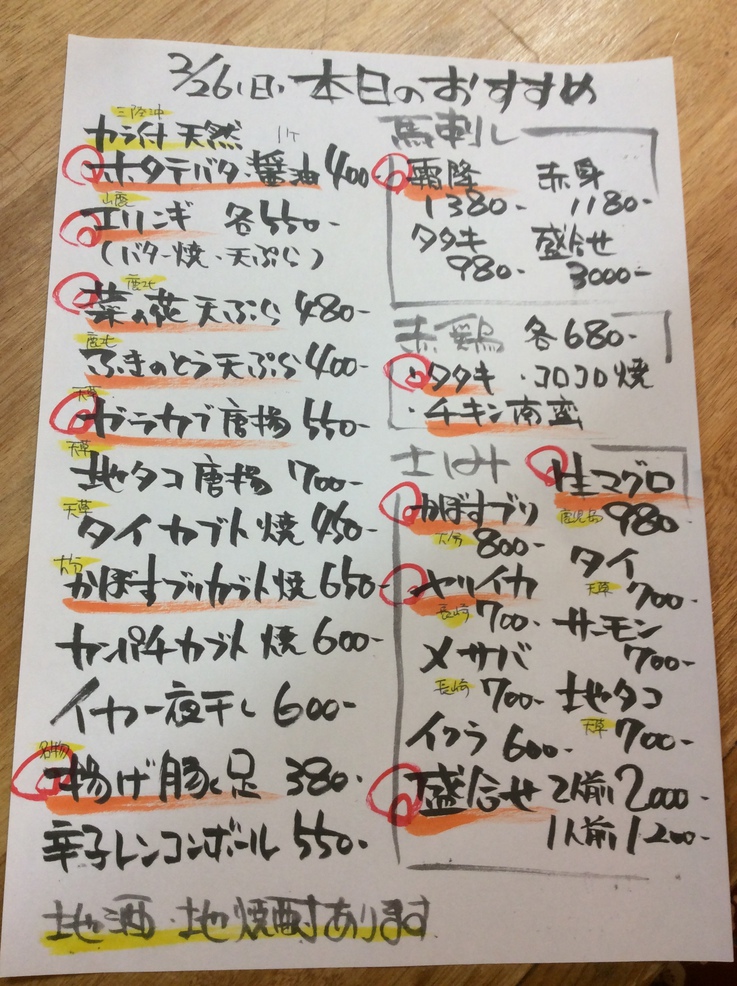 3/26(日) 本日のおすすめ
三陸沖
カラ付天然 1ケ
ホタテバター醤油 400
山鹿
エリンギ 各550-
(バター焼・天ぷら)
鹿北
菜の花天ぷら 480-
鹿北
ふきのとう天ぷら 400-
天草
ガラカブ唐揚 550-
天草
地タコ唐揚 700-
天草
タイカブト焼 450-
大分
かぼすブリカブト焼 650-
カンパチカブト焼 600-
イカ一夜干し 600-
名物
揚げ豚足 380-
辛子レンコンボール 550-
馬刺し
霜降 赤身
1380- 1180-
タタキ 盛合せ
980- 3000-
赤鶏 各680-
・タタキ ・コロコロ焼
・チキン南蛮
さしみ
生マグロ
鹿児島 980-
かぼすブリ
大分 800-
タイ
天草 700-
ヤリイカ
長崎 700-
サーモン
700-
メサバ
長崎 700-
地タコ
天草 700-
イクラ 600-
盛合せ 2人前 2000-
1人前 1200-
地酒・地焼酎あります